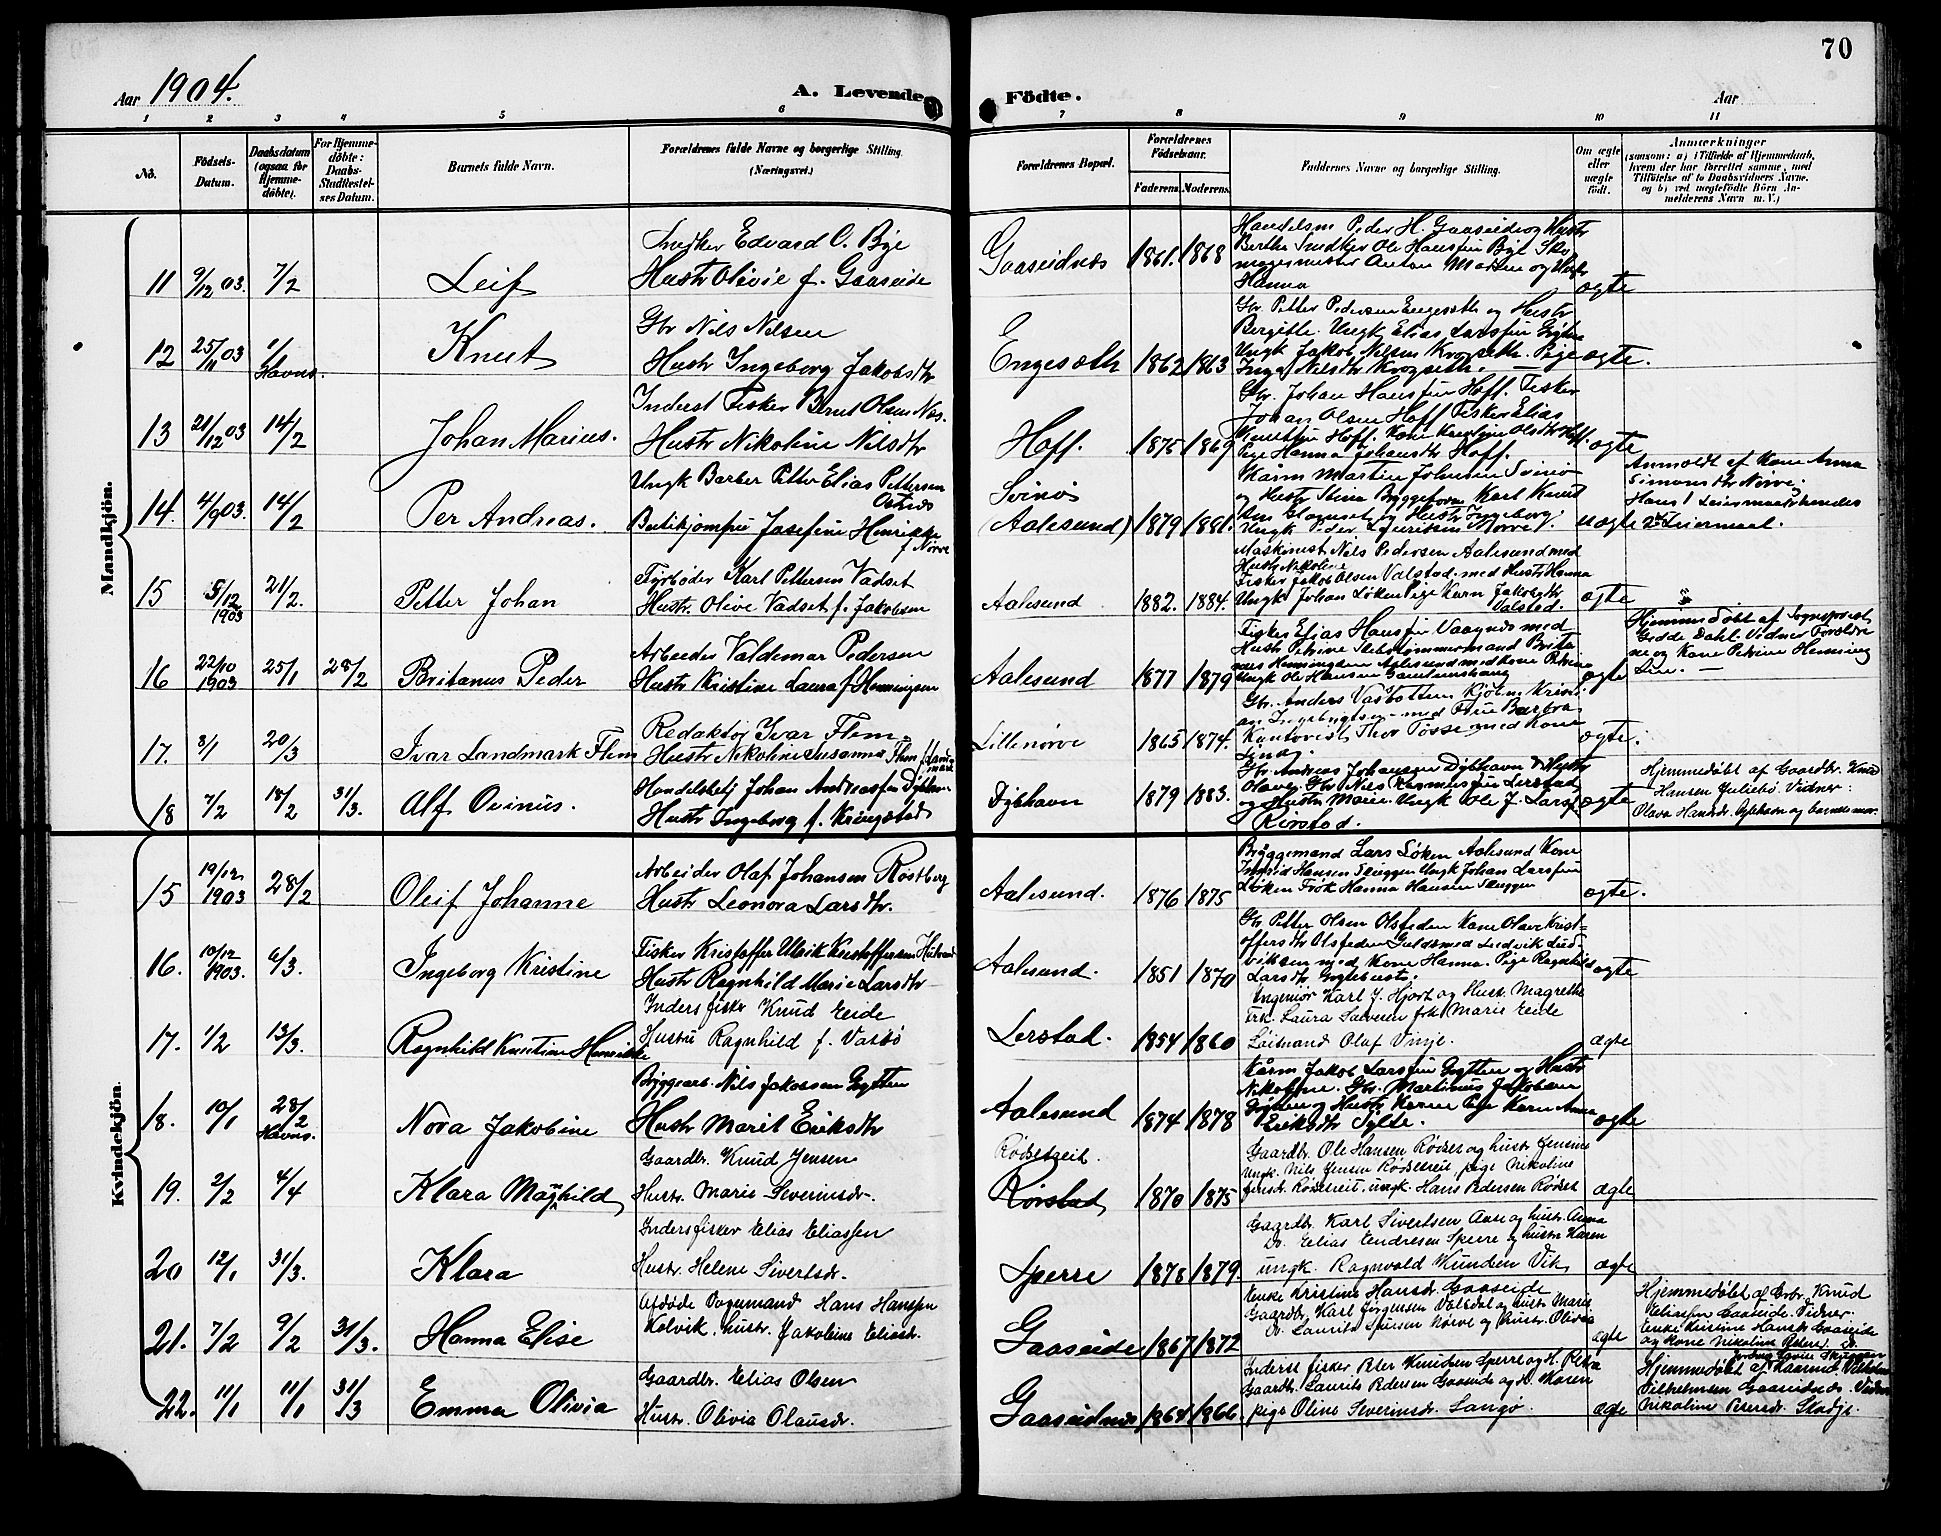 70
Aar 1904.
A. Levende Födte.
Aar
1 2 3 4 5 6 7 8 9 10 11
No.
Födsels-
Datum.
Daabsdatum
(ogsaa for
Hjemme-
döbte).
For Hjemme-
döbte:
Daabs-
Stadfæstel-
ses Datum.
Barnets fulde Navn.
Forældrenes fulde Navne og borgerlige Stilling.
(Næringsvei.)
Forældrenes Bopæl.
Forældrenes
Födselsaar.
Faderens. Moderens.
Faddernes Navne og borgerlige Stilling.
Om ægte
eller
uægte
født.
Anmærkninger
(saasom: a) i Tilfælde af Hjemmedaab,
hvem der har forrettet samme, med
Tilföielse af to Daabsvidners Navne,
og b) ved uægtefödte Börn An-
melderens Navn m. V.)
Mandkjön.
11 9/12 03. 7/2 Leif
Snedker Edvard O. Bye
Hustr Olivie f. Gaaseide
Gaaseidnæs 1861. 1868
Handelsm Peder H. Gaaseide og Hustr
Berthe Snedker Ole Hansen Bye
Anton Madsen og Hustr
Hanna
ægte
12 25/11 03 1/ Havns. Knut
Gbr Nils Nilsen
Hustr Ingeborg Jakobsdtr
Engesæth 1862 1863
Gbr. Petter Pedersen Engesæth og Hustr
Bergitte. Ungk Elias Larssen
Ungk Jakob Nilsen Krogsæth. Pige
Inga Nilsdtr Krogsæth.
ægte.
13 21/12 03 14/2 Johan Marius.
Inderst Fisker Bernt Olsen Næs.
Hustr Nikoline Nilsdtr
Hoff. 1875 1869
Gbr. Johan Hanssen Hoff. Fisker
Johan Olsen Hoff Fisker Elias
Knutsen Hoff. Kone Karoline Olsdtr Hoff.
Pige Hanna Johansdtr Hoff.
ægte
14. 4/9 03. 14/2 Per Andreas.
Ungk Barber Petter Elias Pettersen
Butikjomfru Josefine Henrikke
f Nørve
Svinø
(Aalesund) 1879 1881.
Martin Johnsen Svinø
og Hustr Stina Karl Knut
og Hustr Ingeborg.
Ungk Peder Nørve.
uægte
Anmeldt af Kone Anna
Simonsdtr Nørve.
Hans 1 Leiermaal hendes
2 Leiermaal.
15 5/12 1903 21/2. Petter Johan
Fyrbøder Karl Pettersen Vadset
Hustr. Olive Vadset f. Jakobsen
Aalesund 1882. 1884.
Maskinist Nils Pedersen Aalesund med
Hustr Nikoline
Fisker Jakob Olsen Valstad. med Hustr Hanna
Ungk Johan Løken Pige Karn Jakobsdtr
Valstad.
ægte "
16 22/10 1903 25/1 28/2 Britanus Peder
Arbeider Valdemar Pedersen
Hustr Kristine Laura f Henningsen
Aalesund 1877 1879
Fisker Elias Hanssen Vaagnæs med
Hustr Petrine Skibstømmermand Brita
nus Henningsen Aalesund med Kone Petrine
Ungk Ole Hansen
ægte
Hjemmedøbt af Sogneprest
Gedde Dahl. Vidner Forældre
ne og Kone Petrine Henning
sen. —
17. 3/1 20/3 Ivar Landmark Flem
Redaktør Ivar Flem.
Hustr Nikoline Susanna Flem f Land
mark
Lillenørve 1865 1874.
Gbr. Anders Vasbotten Kjøbm. Kristi
an Ingebrigtsen med Frue Barbra
Kontorist Thor Tøsse med Kone
ægte.
18 7/2 18/2 31/3. Alf Ovinus.
Handelsbetj Johan Andreassen Dybhavn
Hustr Ingeborg f. Kringstad
Dybhavn 1879 1883.
Gbr. Andreas Johansen Dybhavn og Hustr
Olave. Gbr Nils Rasmussen Lerstad
og Hustr Marie. Ungk Ole J. Larsg
Rørstad.
ægte
Hjemmedøbt af Gaardbr. Knud
Hansen Julebø. Vidner:
Olava Hansdr. Dybhavn og barnets mor.
Kvindekjön.
15 19/12 1903 28/2 Oleif Johanne
Arbeider Olaf Johansen Rostberg
Hustr Leonora Larsdtr.
Aalesund. 1876 1875
Bryggemand Lars Løken Aalesund Kone
Ingrid Hansen Skuggen Ungk Johan Larssen
Løken Frøk Hanna Hansen Skuggen
ægte.
16. 10/12 1903. 6/3. Ingeborg Kristine
Fisker Kristoffer Ulrik Kristoffersen
Hustr Ragnhild Marie Larsdtr
Aalesund. 1851 1870
Gbr Petter Olsen Olsteden Kone Olave Krist-
offersdtr Olsteden Guldsmed Ludvik Lud
viksen med Kone Hanna. Pige Ragnhild
Larsdtr
ægte
17. 1/2 13/3. Ragnhild Kristine Henrikke
Inders fisker Knud Eide
Hustru Ragnhild f. Vasbø
Lerstad. 1854 1860
Ingeniør Karl J. Hjort og Hust. Magrethe
Frk. Laura Iversen frk. Marie Eide
Løitnand Olaf Vinje.
ægte
18. 10/1 28/2 Havns. Nora Jakobine
Bryggearb. Nils Jakobsen Grytten
Hustr Marit Eriksdtr
Aalesund 1874 1878
Jakob Larssen Grytten og Hustr
Nikoline. Gbr. Martinus Jakobsen
Grytten og Hustr Karen Pige Karn Anna
Eriksdtr Sylte.
ægte
19. 2/2 4/4 Klara Magnhild
Gaardbr. Knud Jensen
Hustr. Marie Severinsdr.
Rødsetreit.
Rørstad 1870 1875
Gaardbr. Ole Hansen Rødset og hustr. Jensine
Ungk. Nils Jensen Rødsetreit, pige Nikoline
Jensdr. Rødsetreit, ungk. Hans Pedersen Rødset
ægte
20 12/1 31/3. Klara
Inders fisker Elias Eliassen
Hustr. Helene Sivertsdr.
Sperre 1878 1879.
Gaardbr. Karl Sivertsen Aase og hustr. Anna
Do. Elias Endresen Sperre og hustr. Karen
ungk. Ragnvald Knudsen Vik
ægte
21. 7/2 9/2 31/3. Hanna Elise
Afdøde Dagmand Hans Hanssen
Kolvik. hustr. Jakobine Eliasd.
Gaaseide 1867 1872
Enke Kristine Hansdr. Gaaseide
Gaardbr. Karl Jørgensen Valsdal og hustr. Marie
Do. Laurits Iversen Nørve og hustr. Olivia
ægte
Hjemmedøbt af Grbr. Knud
Eliassen Gaaseide. Vidner:
Enke Kristine Hansd. Gaaseide
og Kone Nikoline Peders. Do.
22. 11/1 11/1 31/3 Emma Olivia
Gaardbr. Elias Olsen
Hustr. Olivia Olausdr.
Gaaseidnæs 1864 1866.
Inderst fisker Peter Knudsen Sperre og H. Petra
Gaardbr. Laurits Pedersen Gaaseide og H. Maren
pige Oline Severinsdr. Langø.
ægte
Hjemmedøbt af Rasmus Vilhelm
Vilhelmsen Gaaseidnæs. Vidner
Nikoline Pedersdr. Skodje.